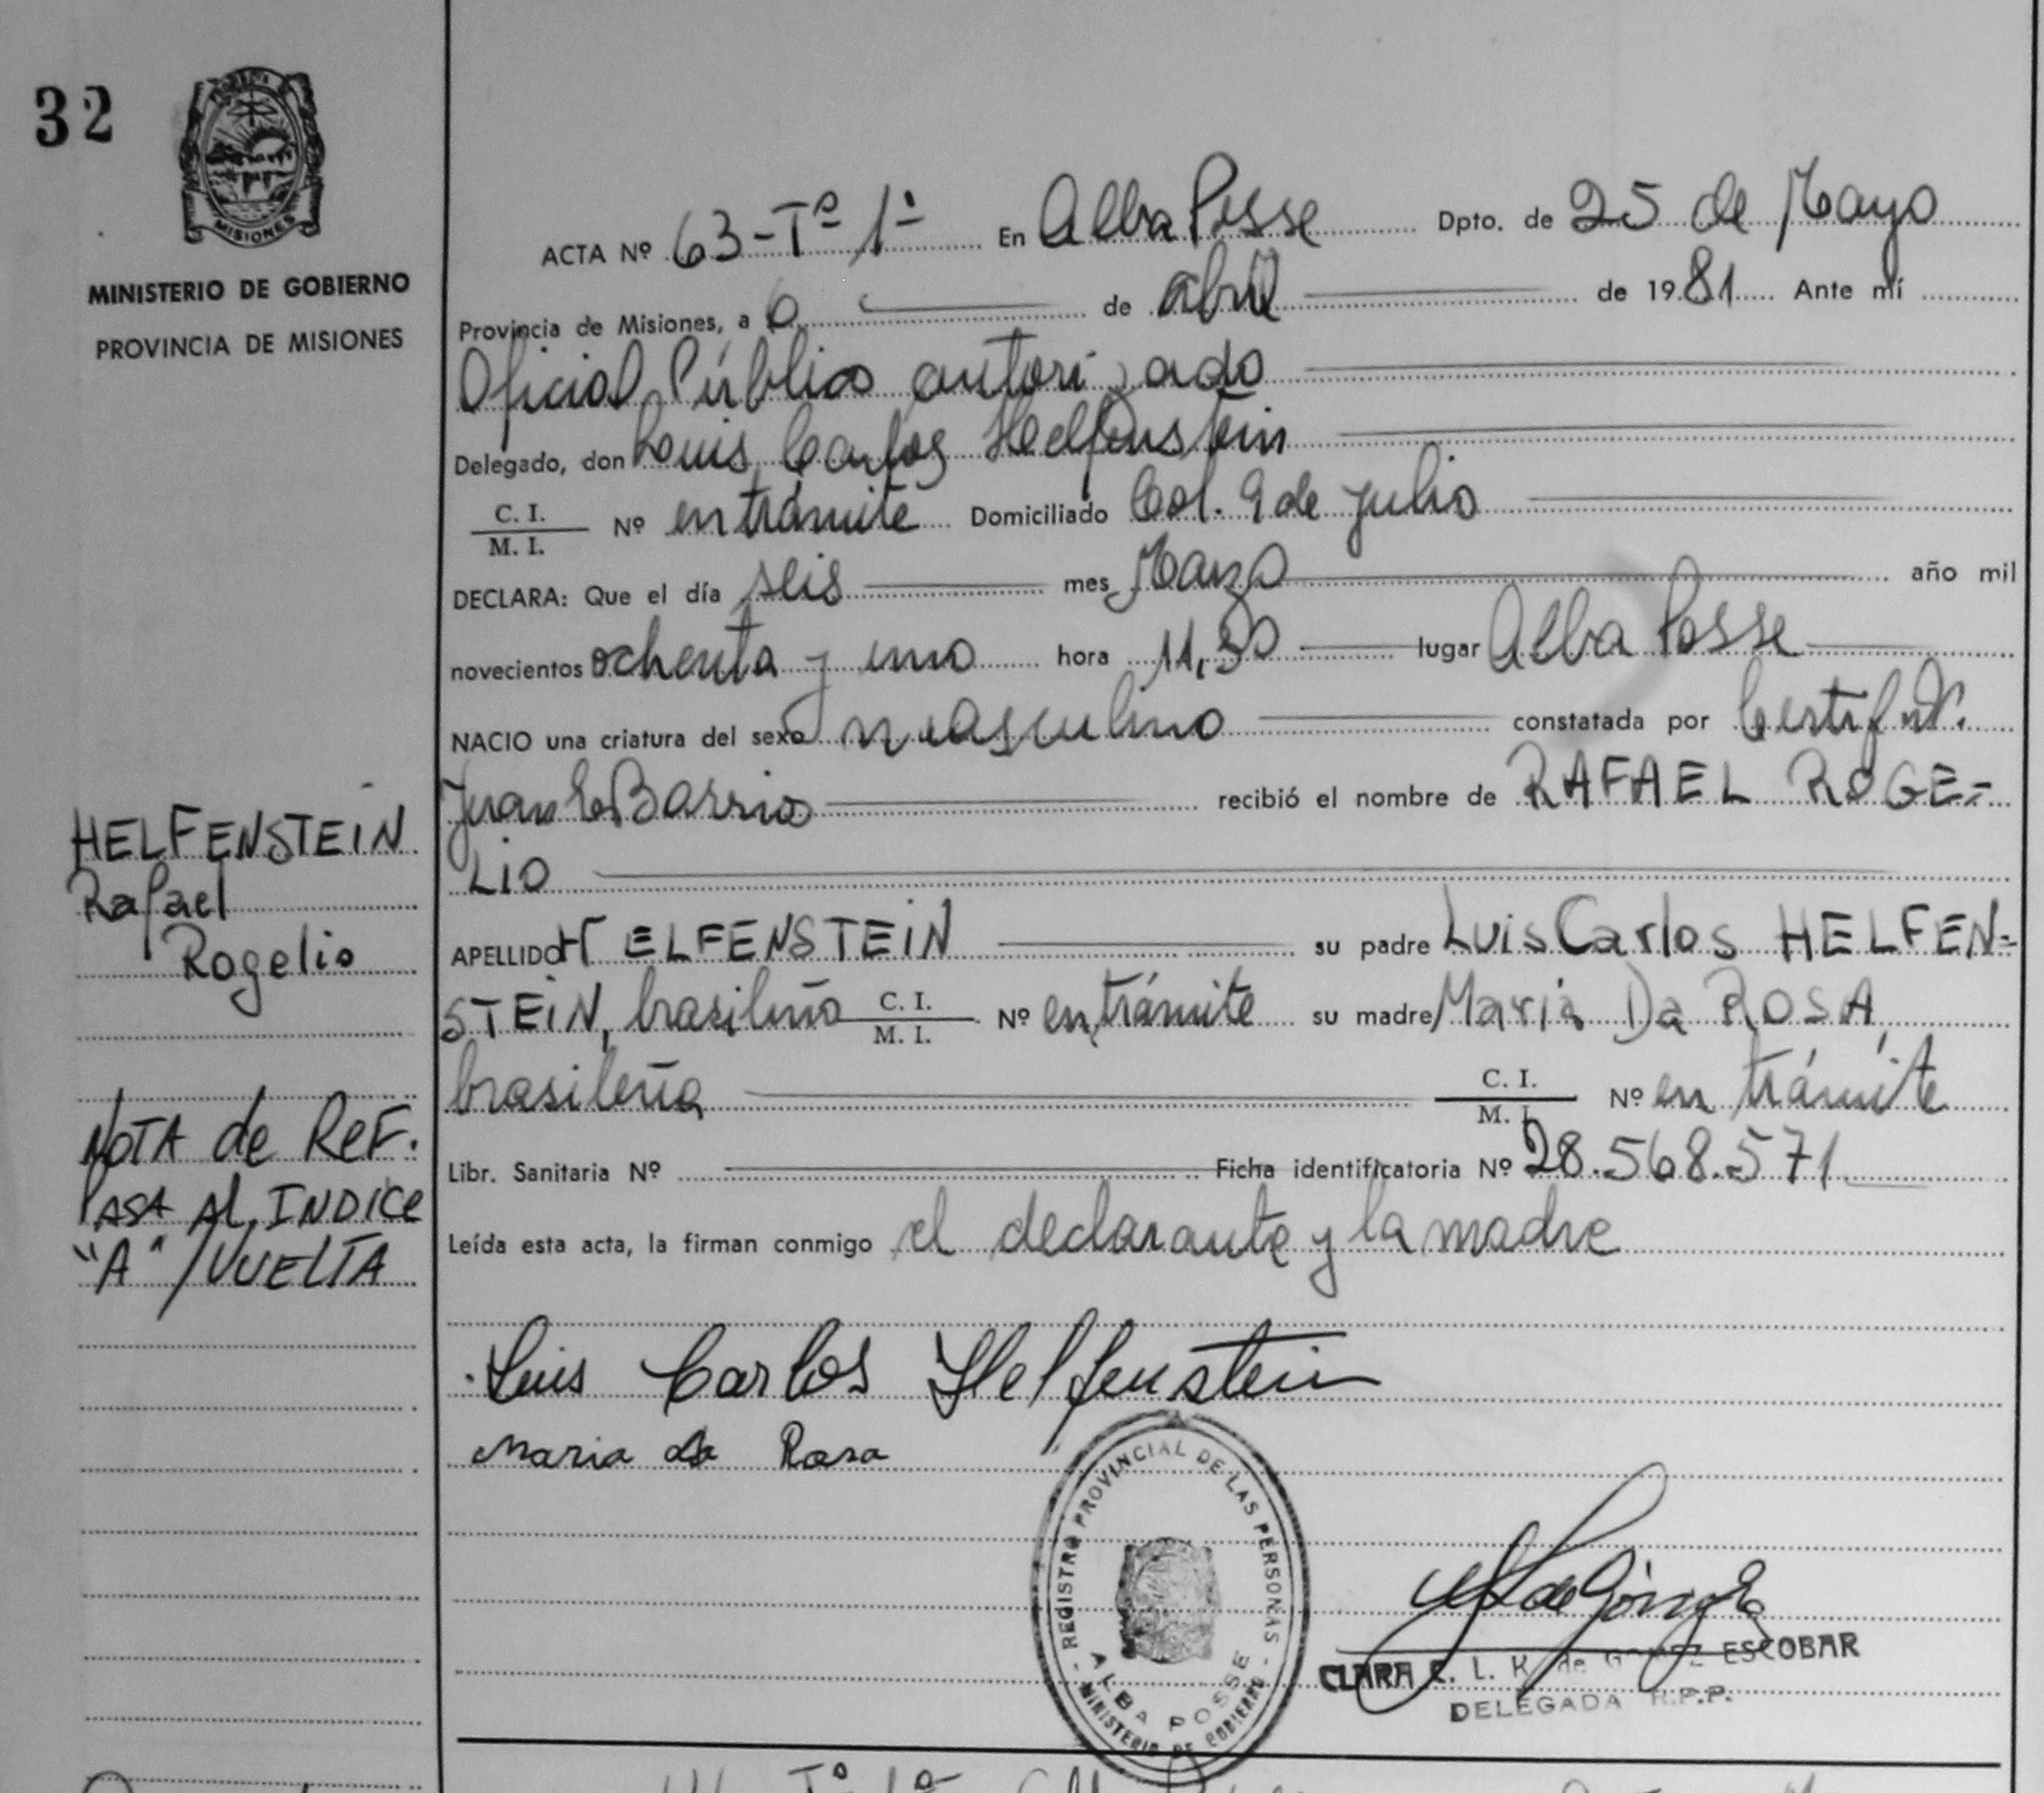 32
MISIONES
MINISTERIO DE GOBIERNO
PROVINCIA DE MISIONES
HELFENSTEIN
Rafael
Rogelio
NOTA de REF.
PASA AL INDICE
"A" / VUELTA
ACTA Nº 63-Tº 1º En Alba Posse Dpto. de 25 de Mayo
Provincia de Misiones, a 6 de abril de 1981 Ante mí
Oficial Público autorizado
Delegado, don Luis Carlos Helfenstein
C. I.
M. I. Nº en trámite Domiciliado Col. 9 de julio
DECLARA: Que el día seis mes Marzo año mil
novecientos ochenta y uno hora 11,30 lugar Alba Posse
NACIO una criatura del sexo masculino constatada por Certif.
Juan Barrios recibió el nombre de RAFAEL ROGE-
LIO
APELLIDO HELFENSTEIN su padre Luis Carlos HELFEN-
STEIN, brasileño C. I. M. I. Nº en trámite su madre Maria Da ROSA,
brasileña C. I. M. I. Nº en trámite
Libr. Sanitaria Nº Ficha identificatoria Nº 28.568.571
Leída esta acta, la firman conmigo el declarante y la madre
Luis Carlos Helfenstein
Maria da Rosa
REGISTRO PROVINCIAL DE LAS PERSONAS
ALBA POSSE
MINISTERIO DE GOBIERNO
CLARA E. L. K. de GOMEZ ESCOBAR
DELEGADA R.P.P.